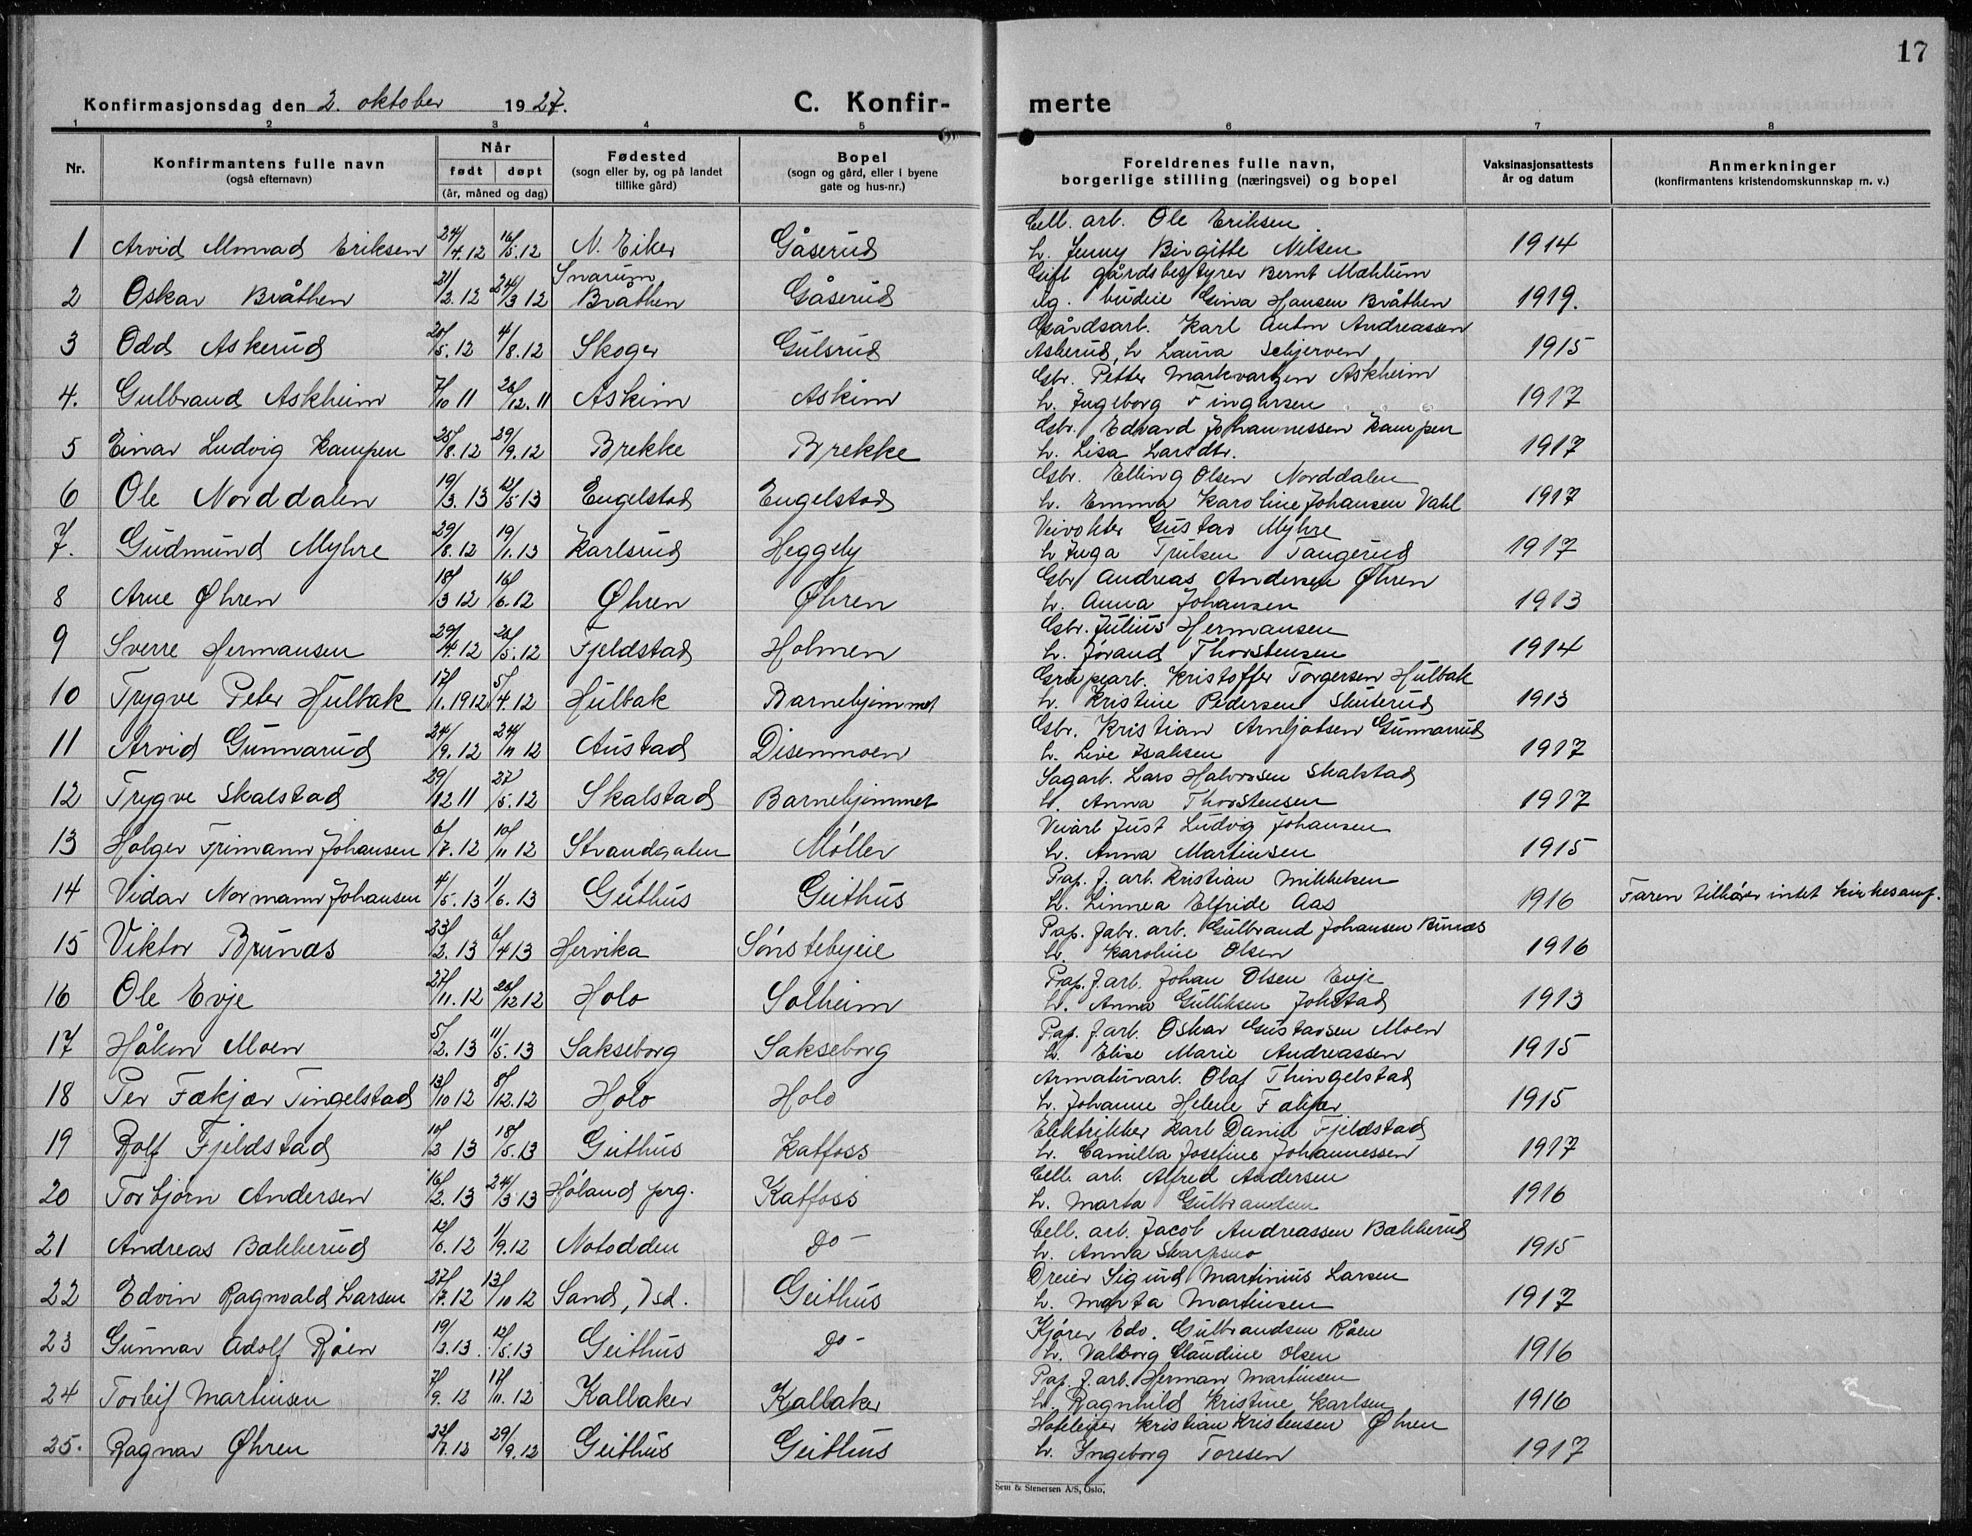 17
Konfirmasjonsdag den 2. oktober 1927.
C. Konfirmerte
1 2 3 4 5 6 7 8
Nr.
Konfirmantens fulle navn
(også efternavn)
Når
født døpt
(år, måned og dag)
Fødested
(sogn eller by, og på landet
tillike gård)
Bopel
(sogn og gård, eller i byene
gate og hus-nr.)
Foreldrenes fulle navn,
borgerlige stilling (næringsvei) og bopel
Vaksinasjonsattests
år og datum
Anmerkninger
(konfirmantens kristendomskunnskap m. v.)
Cell. arb. Ole Eriksen
1 Arvid Eriksen 24/4.12 16/5.12 N. Eiker Gåserud h. Jenny Birgitte Nilsen 1914
Snarum Gift gårdsbestyrer Bernt Mæhlum
2 Oskar Bråthen 21/2.12 24/3 12 Bråthen Gåserud ug. budeie Gina Hansen Bråthen 1919.
Gårdsarb. Karl Anton Andreassen
3 Odd Askerud 20/5.12 4/8.12 Skoger Gulsrud Askerud, h Laura Schjerven 1915
Gbr. Petter Markvartsen Askheim
4. Gulbrand Askheim 7/10 11 26/12.11 Askim Askim h. Ingeborg Fingarsen 1917
Gbr. Edvard Johannessen Kampen
5 Einar Ludvig Kampen 25/8.12 29/9.12 Brekke Brekke h. Lisa Larsdtr. 1917
Gbr. Elling Olsen Norddalen
6 Ole Norddalen 19/3.13 12/5 13 Engelstad Engelstad h. Emma Karoline Johansen Vahl 1917
Veivokter Gustav Myhre
7. Gudmund Myhre 29/8.12 19/1.13 Karlsrud Heggely h Inga Trulsen Tangerud 1917
Gbr Andreas Andersen Øhren
8 Arne Øhren 18/3 12 16/6.12 Øhren Øhren h. Anna Johansen 1913
Gbr. Julius Hermansen
9 Sverre Hermansen 29/4.12 26/5.12 Fjeldstad Holmen h. Jørand Thorstensen 1914
Grubearb. Kristoffer Torgersen Hulbak
10 Trygve Peter Hulbak 17/1.1912 5/4.12 Hulbak Barnehjemmet h. Kristine Pedersen Skuterud 1913
Gbr. Kristian Arnljotsen Gunnarud
11 Arvid Gunnarud 24/9.12 24/11 12 Austad Disenmoen h. Live Isaksen 1917
Sagarb. Lars Halvorsen Skalstad
12 Trygve Skalstad 29/12 11 27/5.12 Skalstad Barnehjemmet h. Anna Thorstensen 1917
Veiarb Just Ludvig Johansen
13 Holger Trimann Johansen 6/7.12 10/11 12 Strandgaten Møller h. Anna Martinsen 1915
Pap. f. arb. Kristian Mikkelsen
14 Vidar Normann Johansen 4/5.13 1/6.13 Geithus Geithus h. Linnea Elfride Aas 1916 Faren tilhører intet kirkesamf.
Pap. fabr. arb. Gulbrand Johansen Brunæs
15 Viktor Brunæs 23/2.13 6/4 13 Hervika Sønstebyeie h. Karoline Olsen 1916
Pap. f. arb. Johan Olsen Evje
16 Ole Evje 27/11.12 26/12 12 Holo Solheim h. Anna Gulliksen Jokstad 1913
Pap. f. arb. Oskar Gustavsen Moen
17 Håkon Moen 5/2.13 11/5.13 Sakseborg Sakseborg h. Elise Marie Andreassen 1915
Armaturarb. Olaf Thingelstad
18 Per Fækjær Tingelstad 13/10 12 8/12.12 Holo Holo h. Johanne Helene Fækjær 1915
Elektrikker Karl Daniel Fjeldstad
19 Rolf Fjeldstad 10/2 13 18/5.13 Geithus Katfoss h. Camilla Josefine Johannessen 1917
Cell. arb. Alfred Andersen
20 Torbjørn Andersen 16/2.13 24/3 13 Høland prg. Katfoss h. Marta Gulbrandsen 1916
Cell. arb. Jacob Andreassen Bakkerud
21 Andreas Bakkerud 12/6.12 1/9.12 Notodden Do - h. Anna Skarpsno 1915
Dreier Sigurd Martinius Larsen
22 Edvin Ragnvald Larsen 27/7.12 13/10 12 Sand, Geithus h. Marta Martinsen 1917
Kjører Edv. Gulbrandsen Røen
23 Gunnar Adolf Røen 19/3.13. 12/5.13 Geithus Do - h. Valborg Claudine Olsen 1916
Pap. f. arb. Herman Martinsen
24 Torleif Martinsen 7/9.12 17/11.12 Kallaker Kallaker h. Ragnhild Kristine Karlsen 1916
Hoteleier Kristian Kristensen Øhren
25. Ragnar Øhren 22/7.12 29/9.12 Geithus Geithus h. Ingeborg Toresen 1917
Sem & Stenersen A/S, Oslo.